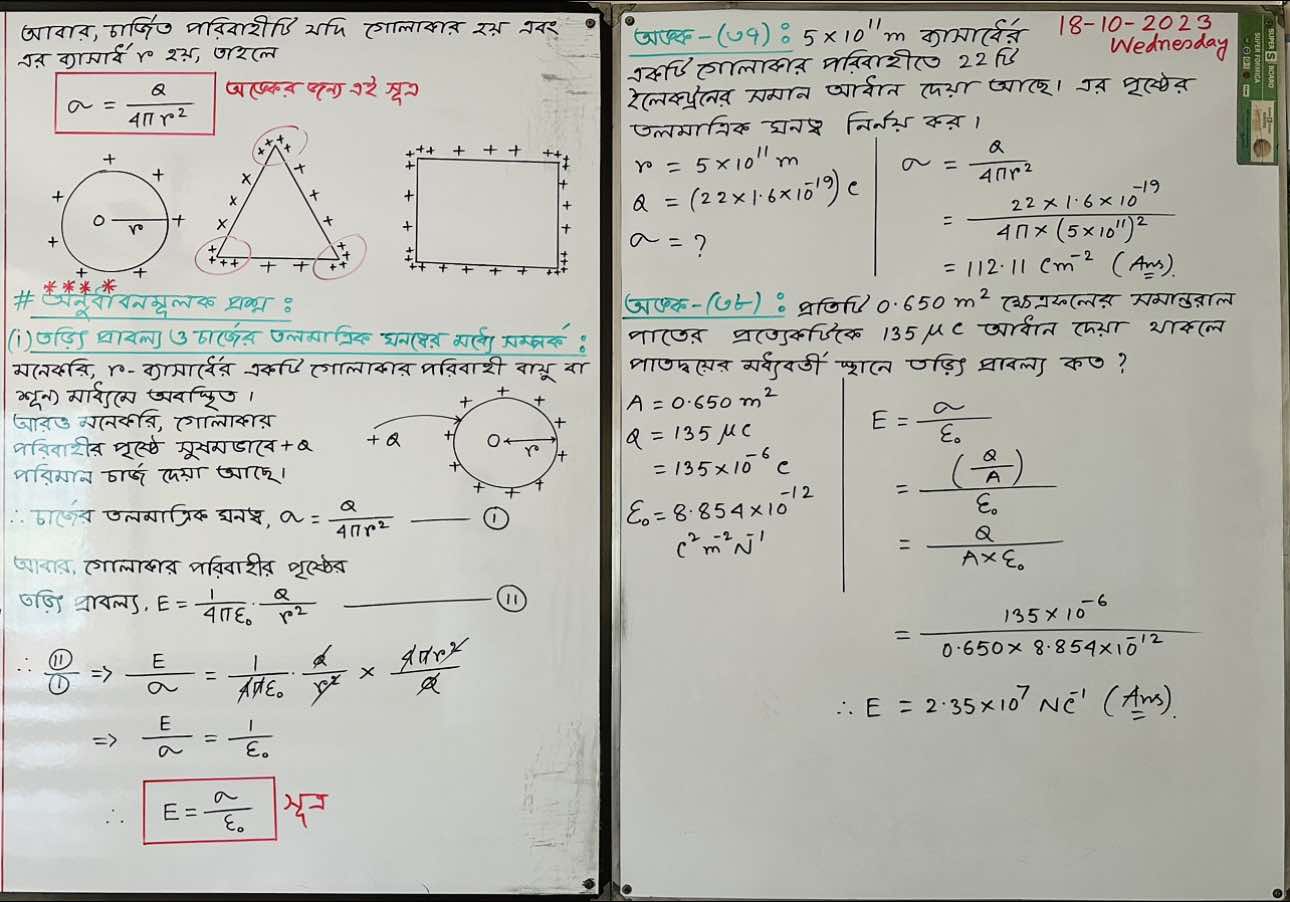 আবার, চার্জিত পরিবাহীটি যদি গোলাকার হয় এবং
এর ব্যাসার্ধ r হয়, তাহলে
σ = Q / 4πr² অংকের জন্য এই সূত্র
O r
# অনুধাবনমূলক প্রশ্ন :
(i) তড়িৎ প্রাবল্য ও চার্জের তলমাত্রিক ঘনত্বের মধ্যে সম্পর্ক :
মনেকরি, r - ব্যাসার্ধের একটি গোলাকার পরিবাহী বায়ু বা
শূন্য মাধ্যমে অবস্থিত।
আরও মনেকরি, গোলাকার
পরিবাহীর পৃষ্ঠে সুষমভাবে +Q
পরিমান চার্জ দেয়া আছে।
+Q O r
∴ চার্জের তলমাত্রিক ঘনত্ব, σ = Q / 4πr² —— (I)
আবার, গোলাকার পরিবাহীর পৃষ্ঠের
তড়িৎ প্রাবল্য, E = 1/4πε₀ · Q/r² —— (II)
∴ (II)/(I) => E/σ = 1/4πε₀ · Q/r² × 4πr²/Q
=> E/σ = 1/ε₀
∴ E = σ/ε₀ সূত্র
18-10-2023
Wednesday
SUPER BOARD
SUPER FORMICA
অংক-(৩৭) : 5×10¹¹ m ব্যাসার্ধের
একটি গোলাকার পরিবাহীতে 22 টি
ইলেকট্রনের সমান আধান দেয়া আছে। এর পৃষ্ঠের
তলমাত্রিক ঘনত্ব নির্নয় কর।
r = 5×10¹¹ m
Q = (22×1.6×10⁻¹⁹) C
σ = ?
σ = Q / 4πr²
= 22×1.6×10⁻¹⁹ / 4π×(5×10¹¹)²
= 112.11 Cm⁻² (Ans).
অংক-(৩৮) : প্রতিটি 0.650 m² ক্ষেত্রফলের সমান্তরাল
পাতের প্রত্যেকটিকে 135 μC আধান দেয়া থাকলে
পাতদ্বয়ের মধ্যবর্তী স্থানে তড়িৎ প্রাবল্য কত ?
A = 0.650 m²
Q = 135 μC
= 135×10⁻⁶ C
ε₀ = 8.854×10⁻¹²
C² m⁻² N⁻¹
E = σ/ε₀
= (Q/A) / ε₀
= Q / A×ε₀
= 135×10⁻⁶ / 0.650×8.854×10⁻¹²
∴ E = 2.35×10⁷ NC⁻¹ (Ans).